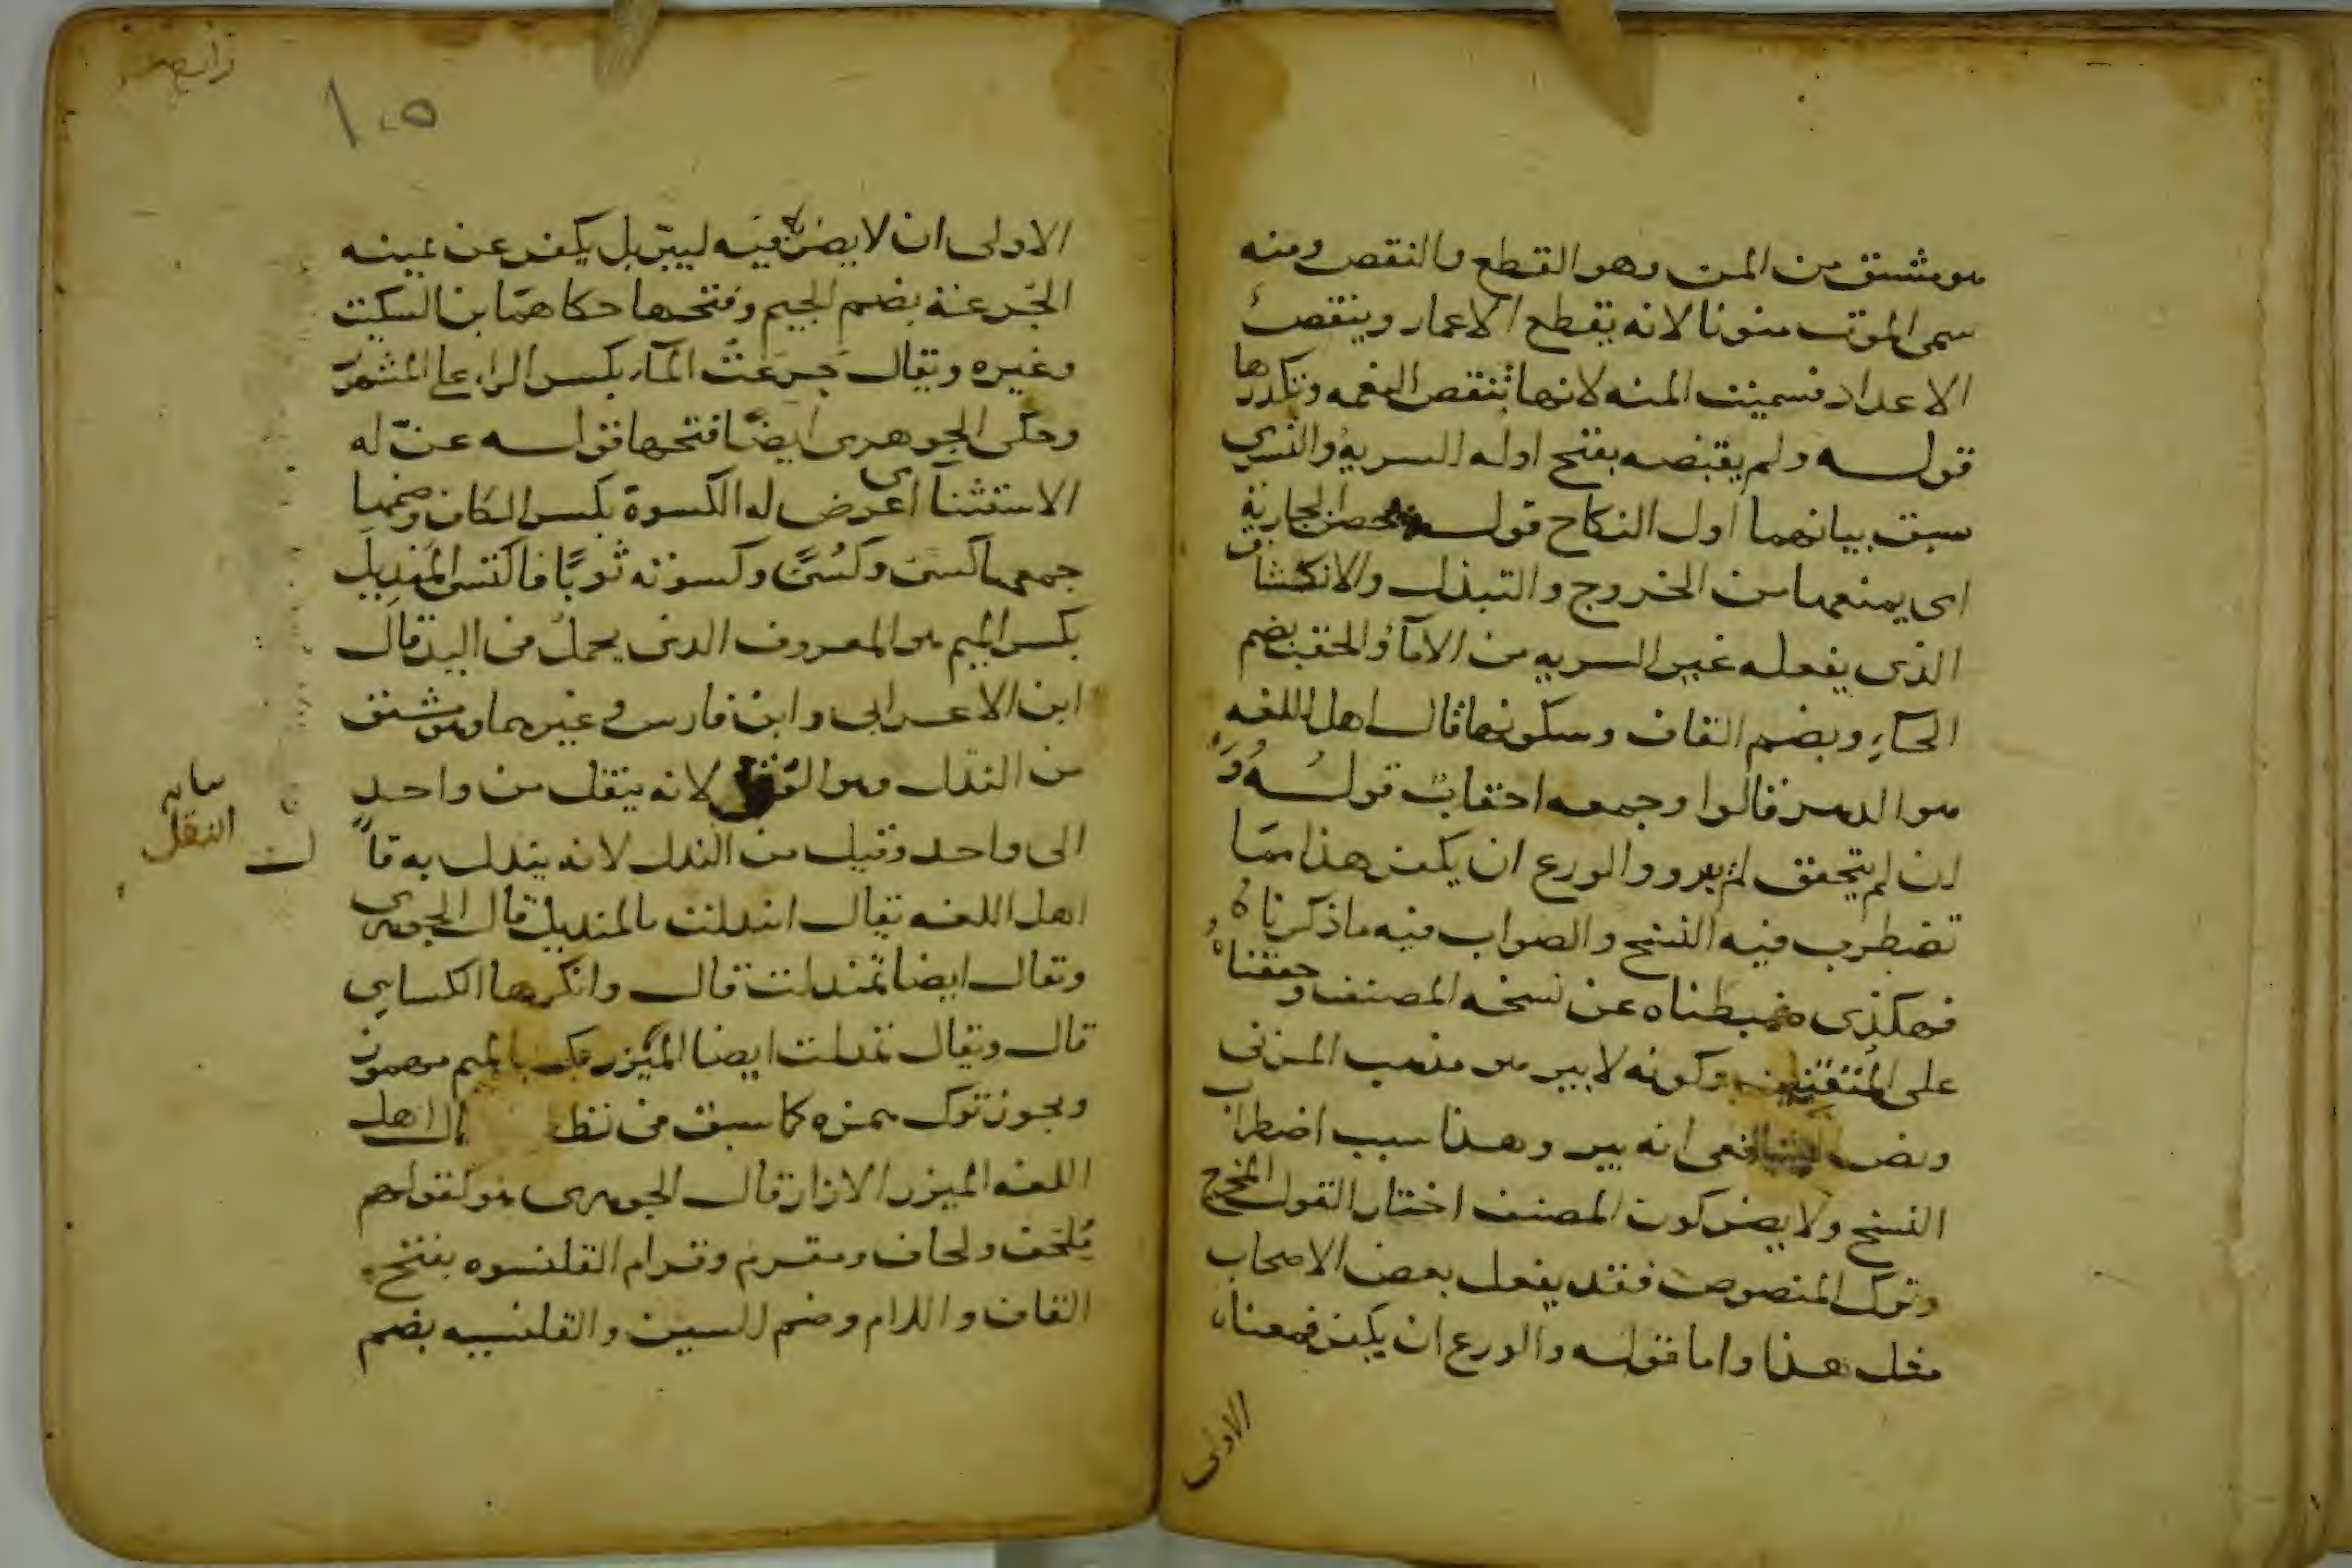 هو مشتق من المن وهو القطع والنقص ومنه
سمى الموت منونا لانه يقطع الاعمار وينقص
الاعداد فسميت المنه لانها تنقص النعمه وتكدرها
قوله ولم يقبضه بفتح اوله السرية والتسري
سبق بيانهما اول النكاح قوله يحصن الجارية
اى يمنعها من الخروج والتبذل والانكشاف
الذى يفعله غير السريه من الامآء والحقب بضم
الحآءِ وبضم القاف وسكونها قال اهل اللغه
هو الدهر قالوا وجمعه احقاب قوله و
ان لم يتحقق لم يبر والورع ان يكفر هذا ممّا
تضطرب فيه النسخ والصواب فيه ما ذكرناه
فهكذى ضبطناه عن نسخه المصنف وحققناه
على المتقنين وكونه لا يبر هو مذهب المزنى
ونص الشافعى انه يبر وهذا سبب اضطراب
النسخ ولا يضر كون المصنف اختار القول المخرج
وترك المنصوص فقد يفعل بعض الاصحاب
مثل هذا واما قوله والورع ان يكفر فمعناه
الاولى
١٠٥
الاولى ان لا يضربه فيه ليبرّ بل يكفر عن يمينه
الجُرعة بضم الجيم وفتحها حكاهما بن السكيت
وغيره ويقال جَرِعتُ المآء بكسر الراء على المشهور
وحكى الجوهرى ايضًا فتحها قوله عنّ له
الاستثنآ اى عرض له الكسوة بكسر الكاف وضمها
جمعها كسى وكُسًى وكسوته ثوبًا فاكتسى المنديل
بكسر الميم هو المعروف الذى يحمل فى اليد قال
ابن الاعرابى وابن فارس وغيرهما وهو مشتق
من الندل وهو النقل لانه ينقل من واحدٍ
الى واحد وقيل من الندل لانه يندل به قال
النقل
اهل اللغه يقال انتدلت بالمنديل قال الجوهرى
وتقال ايضا تمندلت قال وانكرها الكسايى
قال ويقال تندلت ايضا المئزر بكسر الميم مهموز
ويجوز ترك همزه كما سبق فى قال اهل
اللغه الميزر الازار قال الجوهرى هو كقولهم
مُلحف ولحاف ومقرم وقرام القلنسوه بفتح
القاف واللام وضم السين والقلنسيه بضم